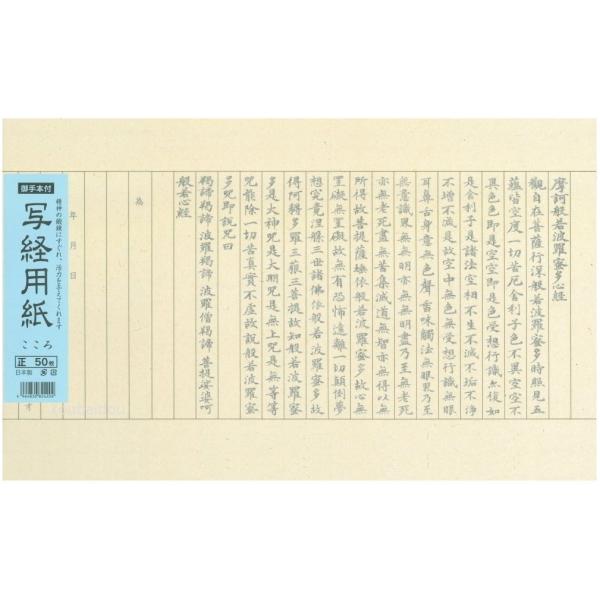 摩訶般若波羅蜜多心経
観自在菩薩行深般若波羅蜜多時照見五
蘊皆空度一切苦厄舎利子色不異空空不
異色色即是空空即是色受想行識亦復如
是舎利子是諸法空相不生不滅不垢不浄
不増不減是故空中無色無受想行識無眼
耳鼻舌身意無色聲香味觸法無眼界乃至
無意識界無無明亦無無明盡乃至無老死
亦無老死盡無苦集滅道無智亦無得以無
所得故菩提薩埵依般若波羅蜜多故心無
罣礙無罣礙故無有恐怖遠離一切顛倒夢
想究竟涅槃三世諸佛依般若波羅蜜多故
得阿耨多羅三藐三菩提故知般若波羅蜜
多是大神咒是大明咒是無上咒是無等等
咒能除一切苦真實不虚故説般若波羅蜜
多咒即説咒曰
羯諦羯諦 波羅羯諦 波羅僧羯諦 菩提娑婆呵
般若心経
為
年 月 日
御手本付
精神の鍛錬にすぐれ、活力を与えてくれます
写経用紙
こころ
正 50枚
日本製